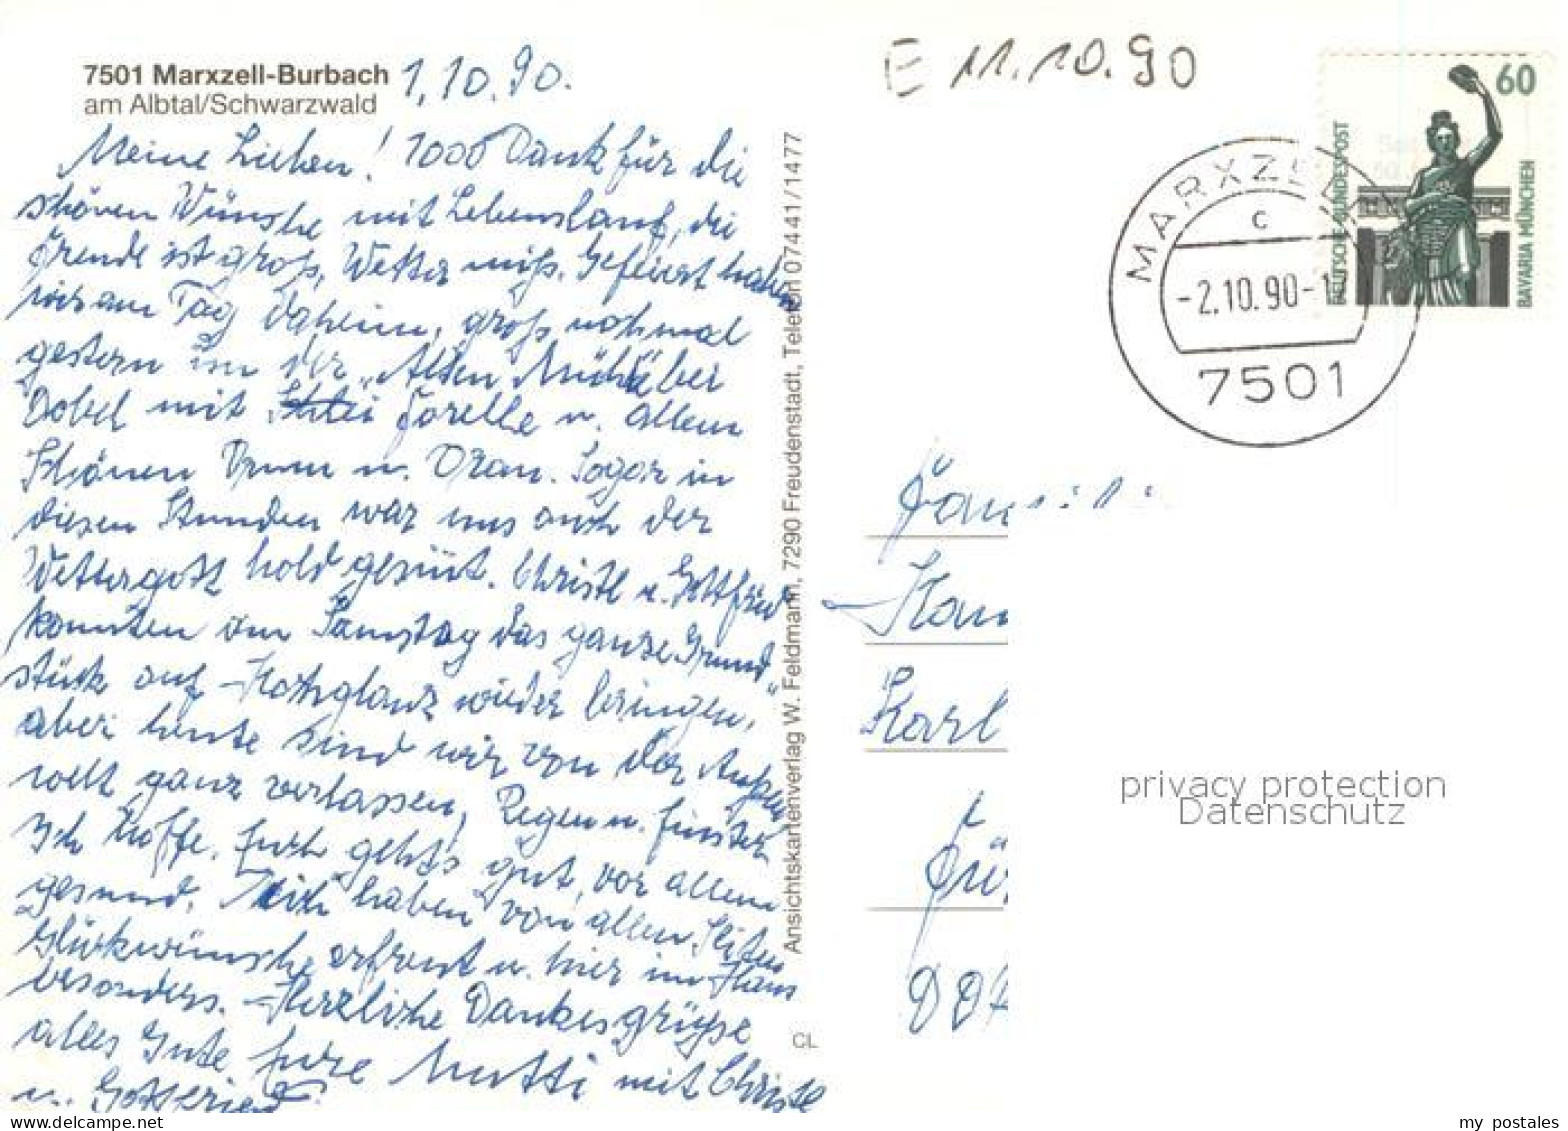 7501 Marxzell-Burbach
am Albtal/Schwarzwald
1.10.90.
Meine Lieben! 1000 Dank für die
schönen Wünsche mit Lebenslauf, die
Freude ist groß, Wetter miß. Gefeiert haben
wir am Tag daheim, groß nochmal
gestern in der "Alten Mühle" über
Dobel mit Forelle u. allem
Schönen Drum u. Dran. Sogar in
diesen Stunden war uns auch der
Wettergott hold gesinnt. Christl u. Gottfried
konnten am Samstag das ganze Grund
stück auf Hochglanz wieder bringen,
aber heute sind wir von der Außen
welt ganz verlassen, Regen u. finster
Ich hoffe, Euch geht's gut, vor allem
gesund. Mich haben von allen Seiten
Glückwünsche erfreut u. hier im Haus
besonders. Herzliche Dankesgrüße
alles Gute Eure Mutti mit Christl
u. Gottfried
Ansichtskartenverlag W. Feldmann, 7290 Freudenstadt, Telefon 07441/1477
CL
E 11.10.90
60
DEUTSCHE BUNDESPOST
BAVARIA MÜNCHEN
MARXZELL
c
-2.10.90-1
7501
Famili
Karl
DDR
privacy protection
Datenschutz
my postales